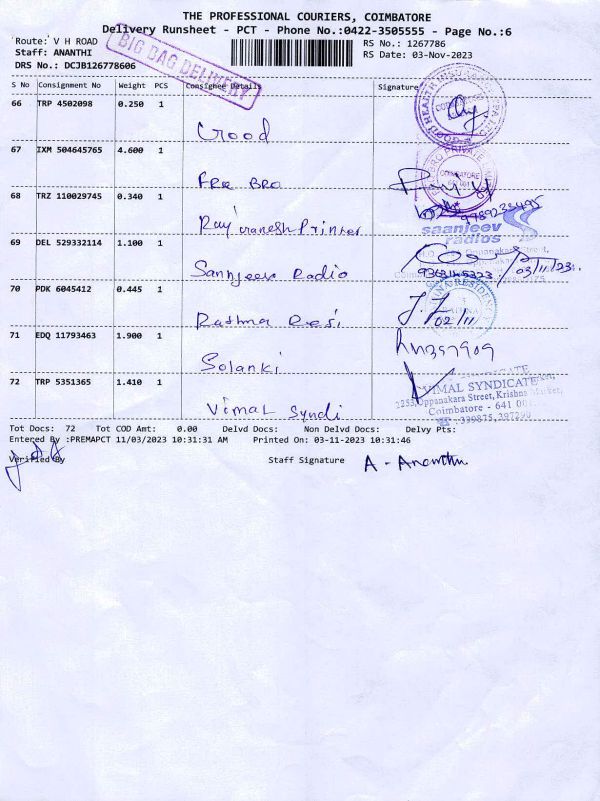 THE PROFESSIONAL COURIERS, COIMBATORE
Delivery Runsheet - PCT - Phone No.:0422-3505555 - Page No.:6
Route: V H ROAD
Staff: ANANTHI
DRS No.: DCJB126778606
RS No.: 1267786
RS Date: 03-Nov-2023
BIG BAG DELIVERY
S No Consignment No Weight PCS Consignee Details Signature
66 TRP 4502098 0.250 1
Good
67 IXM 504645765 4.600 1
Fee Bro
COIMBATORE
68 TRZ 110029745 0.340 1
Raj Granesh Printer
saanjeev
radios
69 DEL 529332114 1.100 1
Sannjeev Radio
03/11/23.
70 PDK 6045412 0.445 1
02/11
71 EDQ 11793463 1.900 1
Solanki
72 TRP 5351365 1.410 1
Vimal Syndi
VIMAL SYNDICATE
2255, Oppanakara Street, Krishna Market,
Coimbatore - 641 001
Tot Docs: 72 Tot COD Amt: 0.00 Delvd Docs: Non Delvd Docs: Delvy Pts:
Entered By :PREMAPCT 11/03/2023 10:31:31 AM Printed On: 03-11-2023 10:31:46
Verified By Staff Signature A - Ananthi